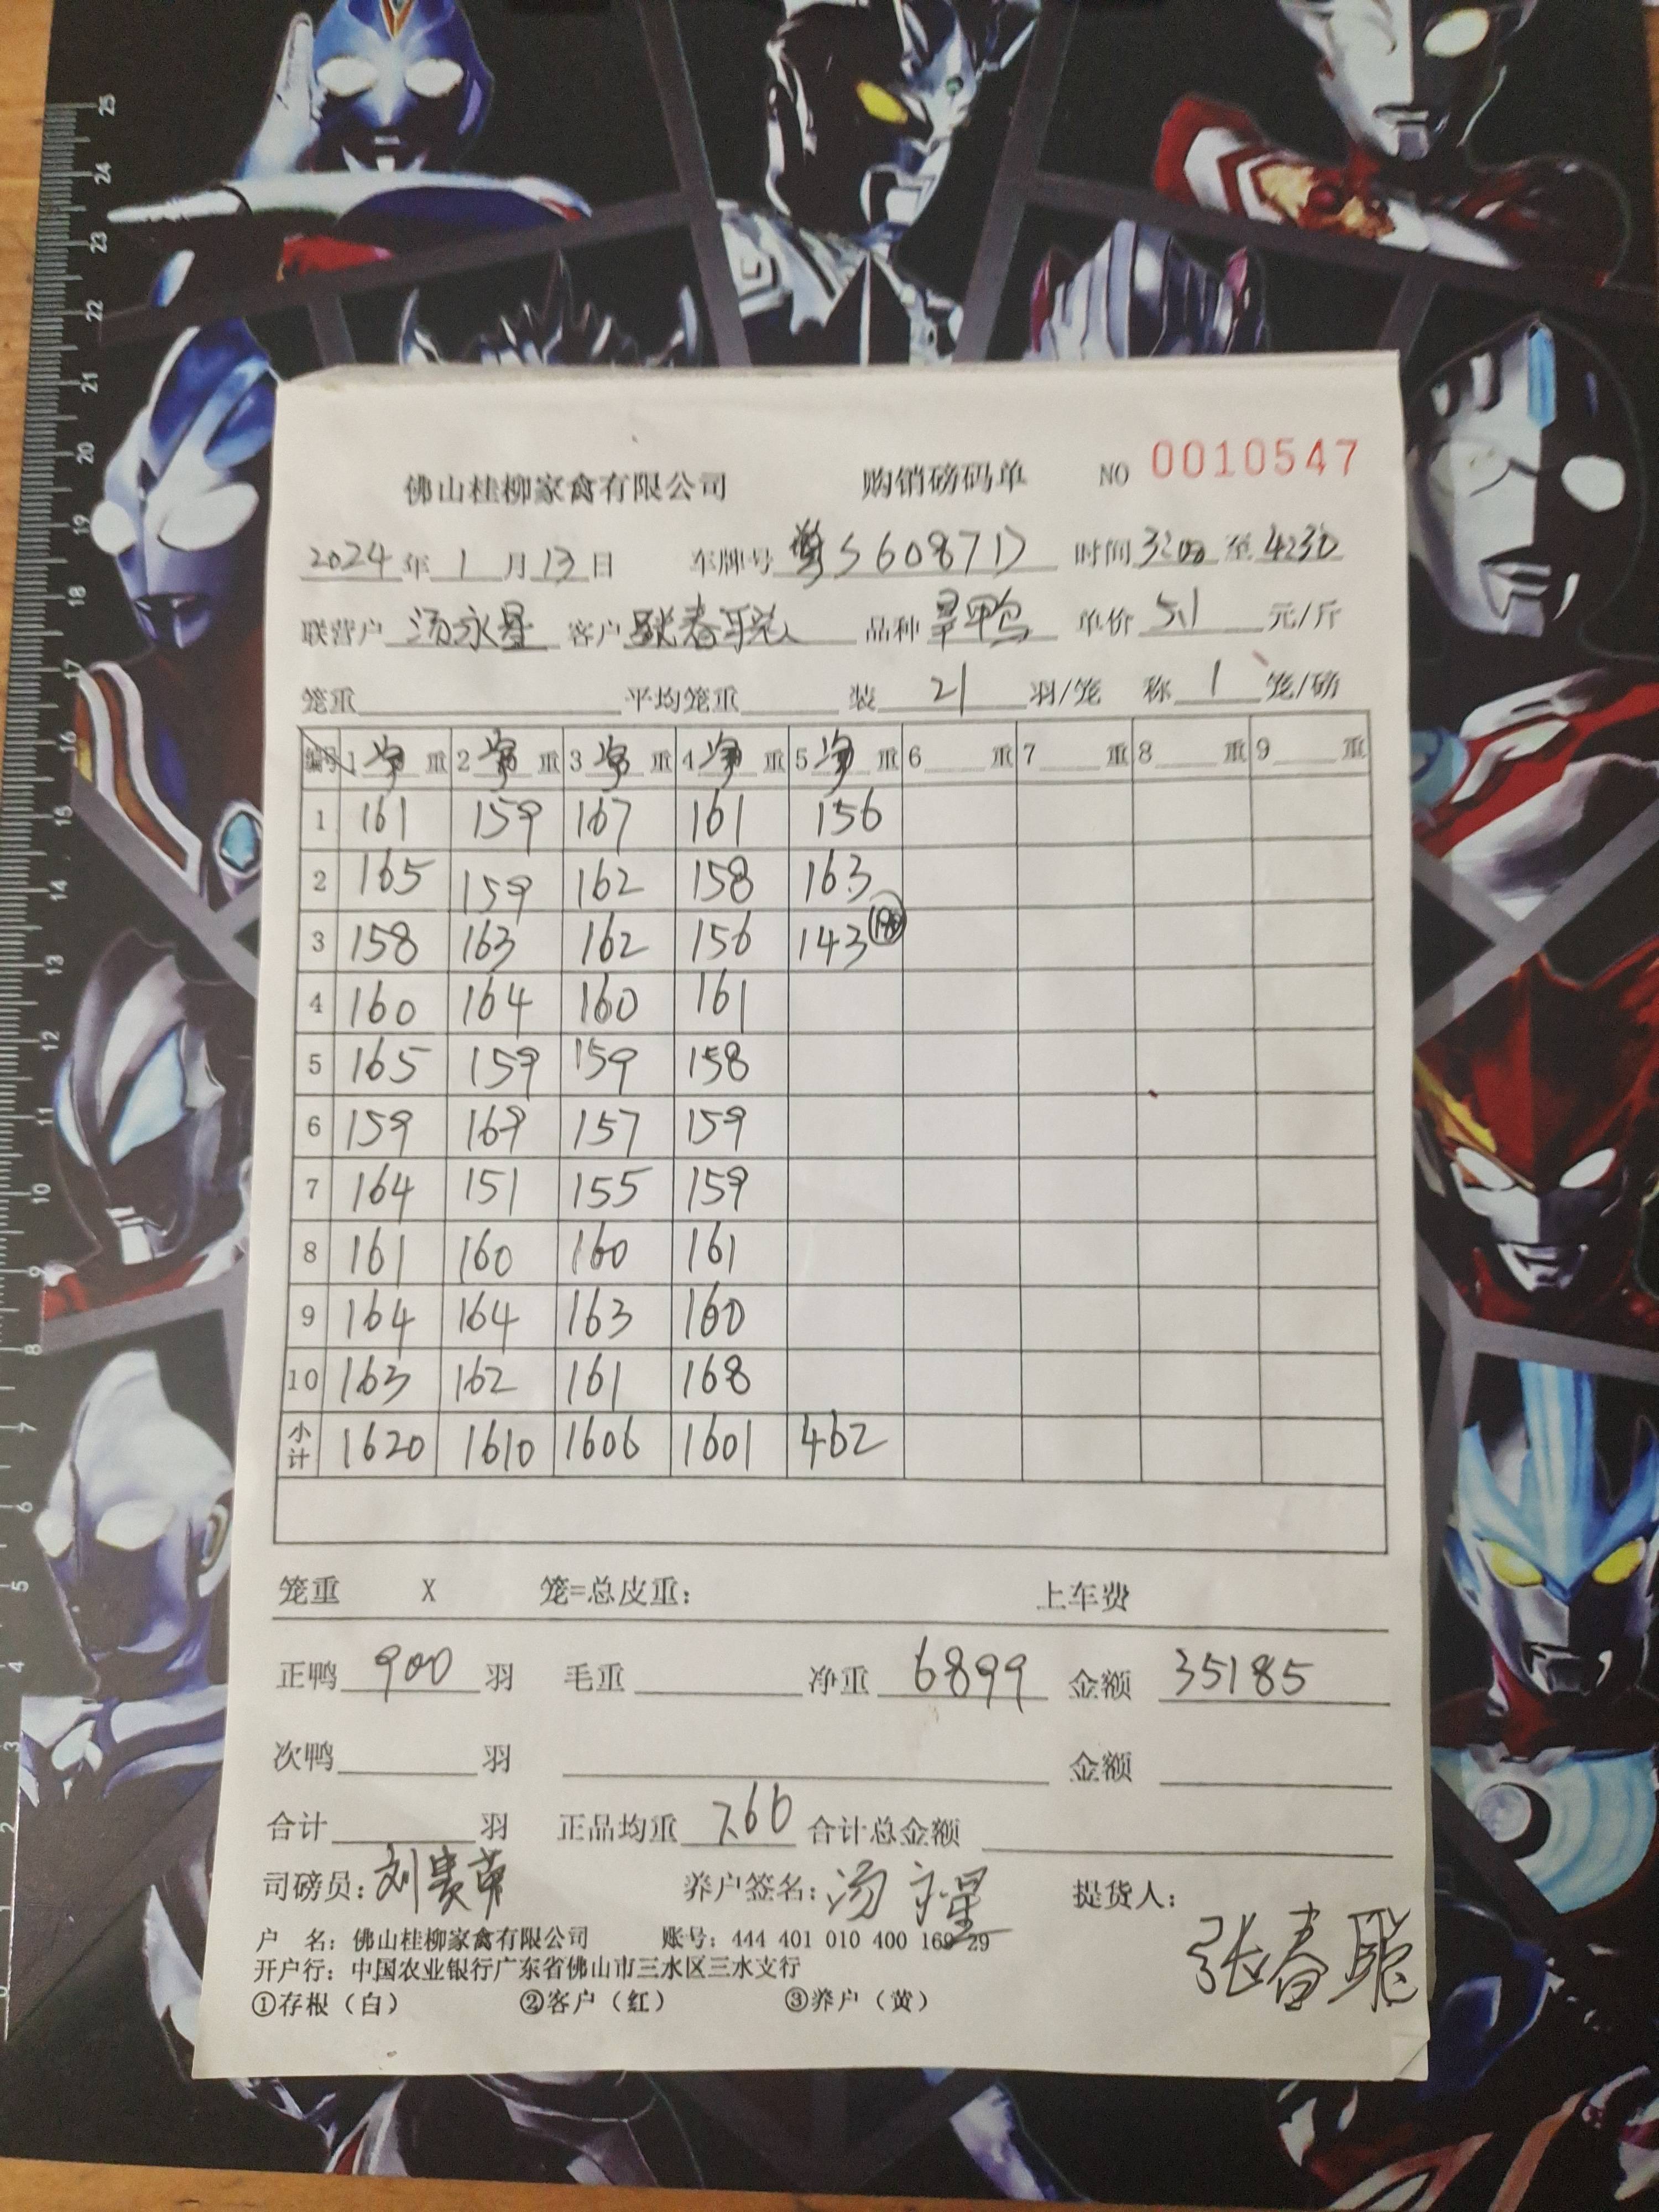 佛山桂柳家禽有限公司 购销磅码单 NO 0010547
2024年 1 月 13 日 车牌号 粤S6087D 时间 3:00 至 4:30
联营户 汤永星 客户 张春聪 品种 旱鸭 单价 5.1 元/斤
笼重 平均笼重 装 21 羽/笼 称 1 笼/磅
编号 1 净 重 2 净 重 3 净 重 4 净 重 5 净 重 6 重 7 重 8 重 9 重
1 161 159 167 161 156
2 165 159 162 158 163
3 158 163 162 156 143
4 160 164 160 161
5 165 159 159 158
6 159 169 157 159
7 164 151 155 159
8 161 160 160 161
9 164 164 163 160
10 163 162 161 168
小计 1620 1610 1606 1601 462
笼重 X 笼=总皮重: 上车费
正鸭 900 羽 毛重 净重 6899 金额 35185
次鸭 羽 金额
合计 羽 正品均重 7.66 合计总金额
司磅员: 刘 养户签名: 汤永星 提货人:
张春聪
户 名: 佛山桂柳家禽有限公司 账号: 444 401 010 400 169 29
开户行: 中国农业银行广东省佛山市三水区三水支行
①存根（白） ②客户（红） ③养户（黄）
25
24
23
22
21
20
19
18
17
16
15
14
13
12
11
10
9
8
7
6
5
4
3
2
1
0